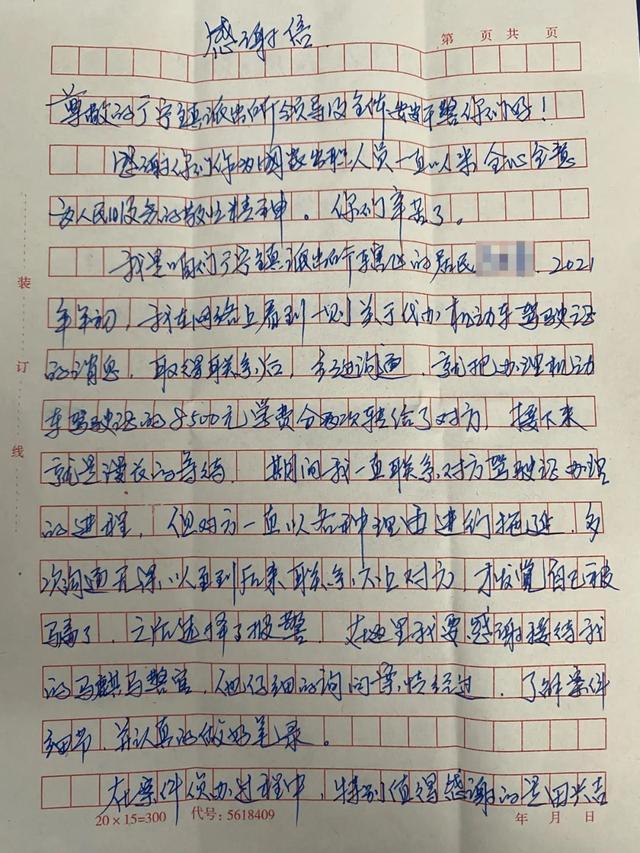 感谢信
第 页 共 页
尊敬的丁字镇派出所领导及全体民警你们好！
感谢你们作为国家公职人员一直以来全心全意
为人民服务的敬业精神。你们辛苦了。
我是咱们丁字镇派出所辖区的居民 2021
年年初，我在网络上看到一则关于代办机动车驾驶证
的消息，取得联系后，经过沟通，就把办理机动
车驾驶证的8500元学费分两次转给了对方，接下来
就是漫长的等待，期间我一直联系对方驾驶证办理
的进程，但对方一直以各种理由进行拖延，多
次沟通无果，以至到后来联系不上对方，才发觉自己被
骗了，之后选择了报警。在这里我要感谢接待我
的马麒马警官，他仔细的询问案情经过，了解案件
细节，并认真的做好笔录。
在案件侦办过程中，特别值得感谢的是田兴吉
20×15=300 代号：5618409
年 月 日
装
订
线